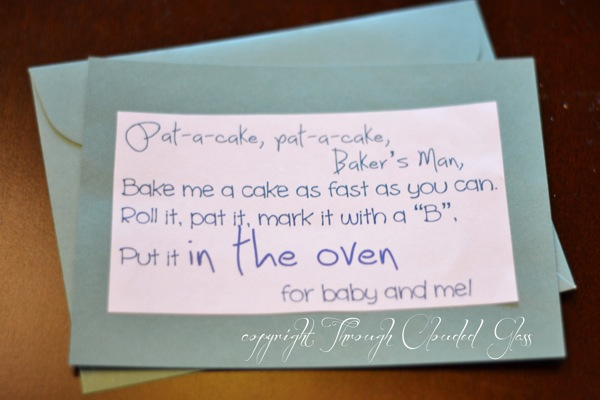 Pat-a-cake, pat-a-cake,
Baker's Man,
Bake me a cake as fast as you can.
Roll it, pat it, mark it with a "B",
Put it in the oven
for baby and me!
copyright Through Clouded Glass